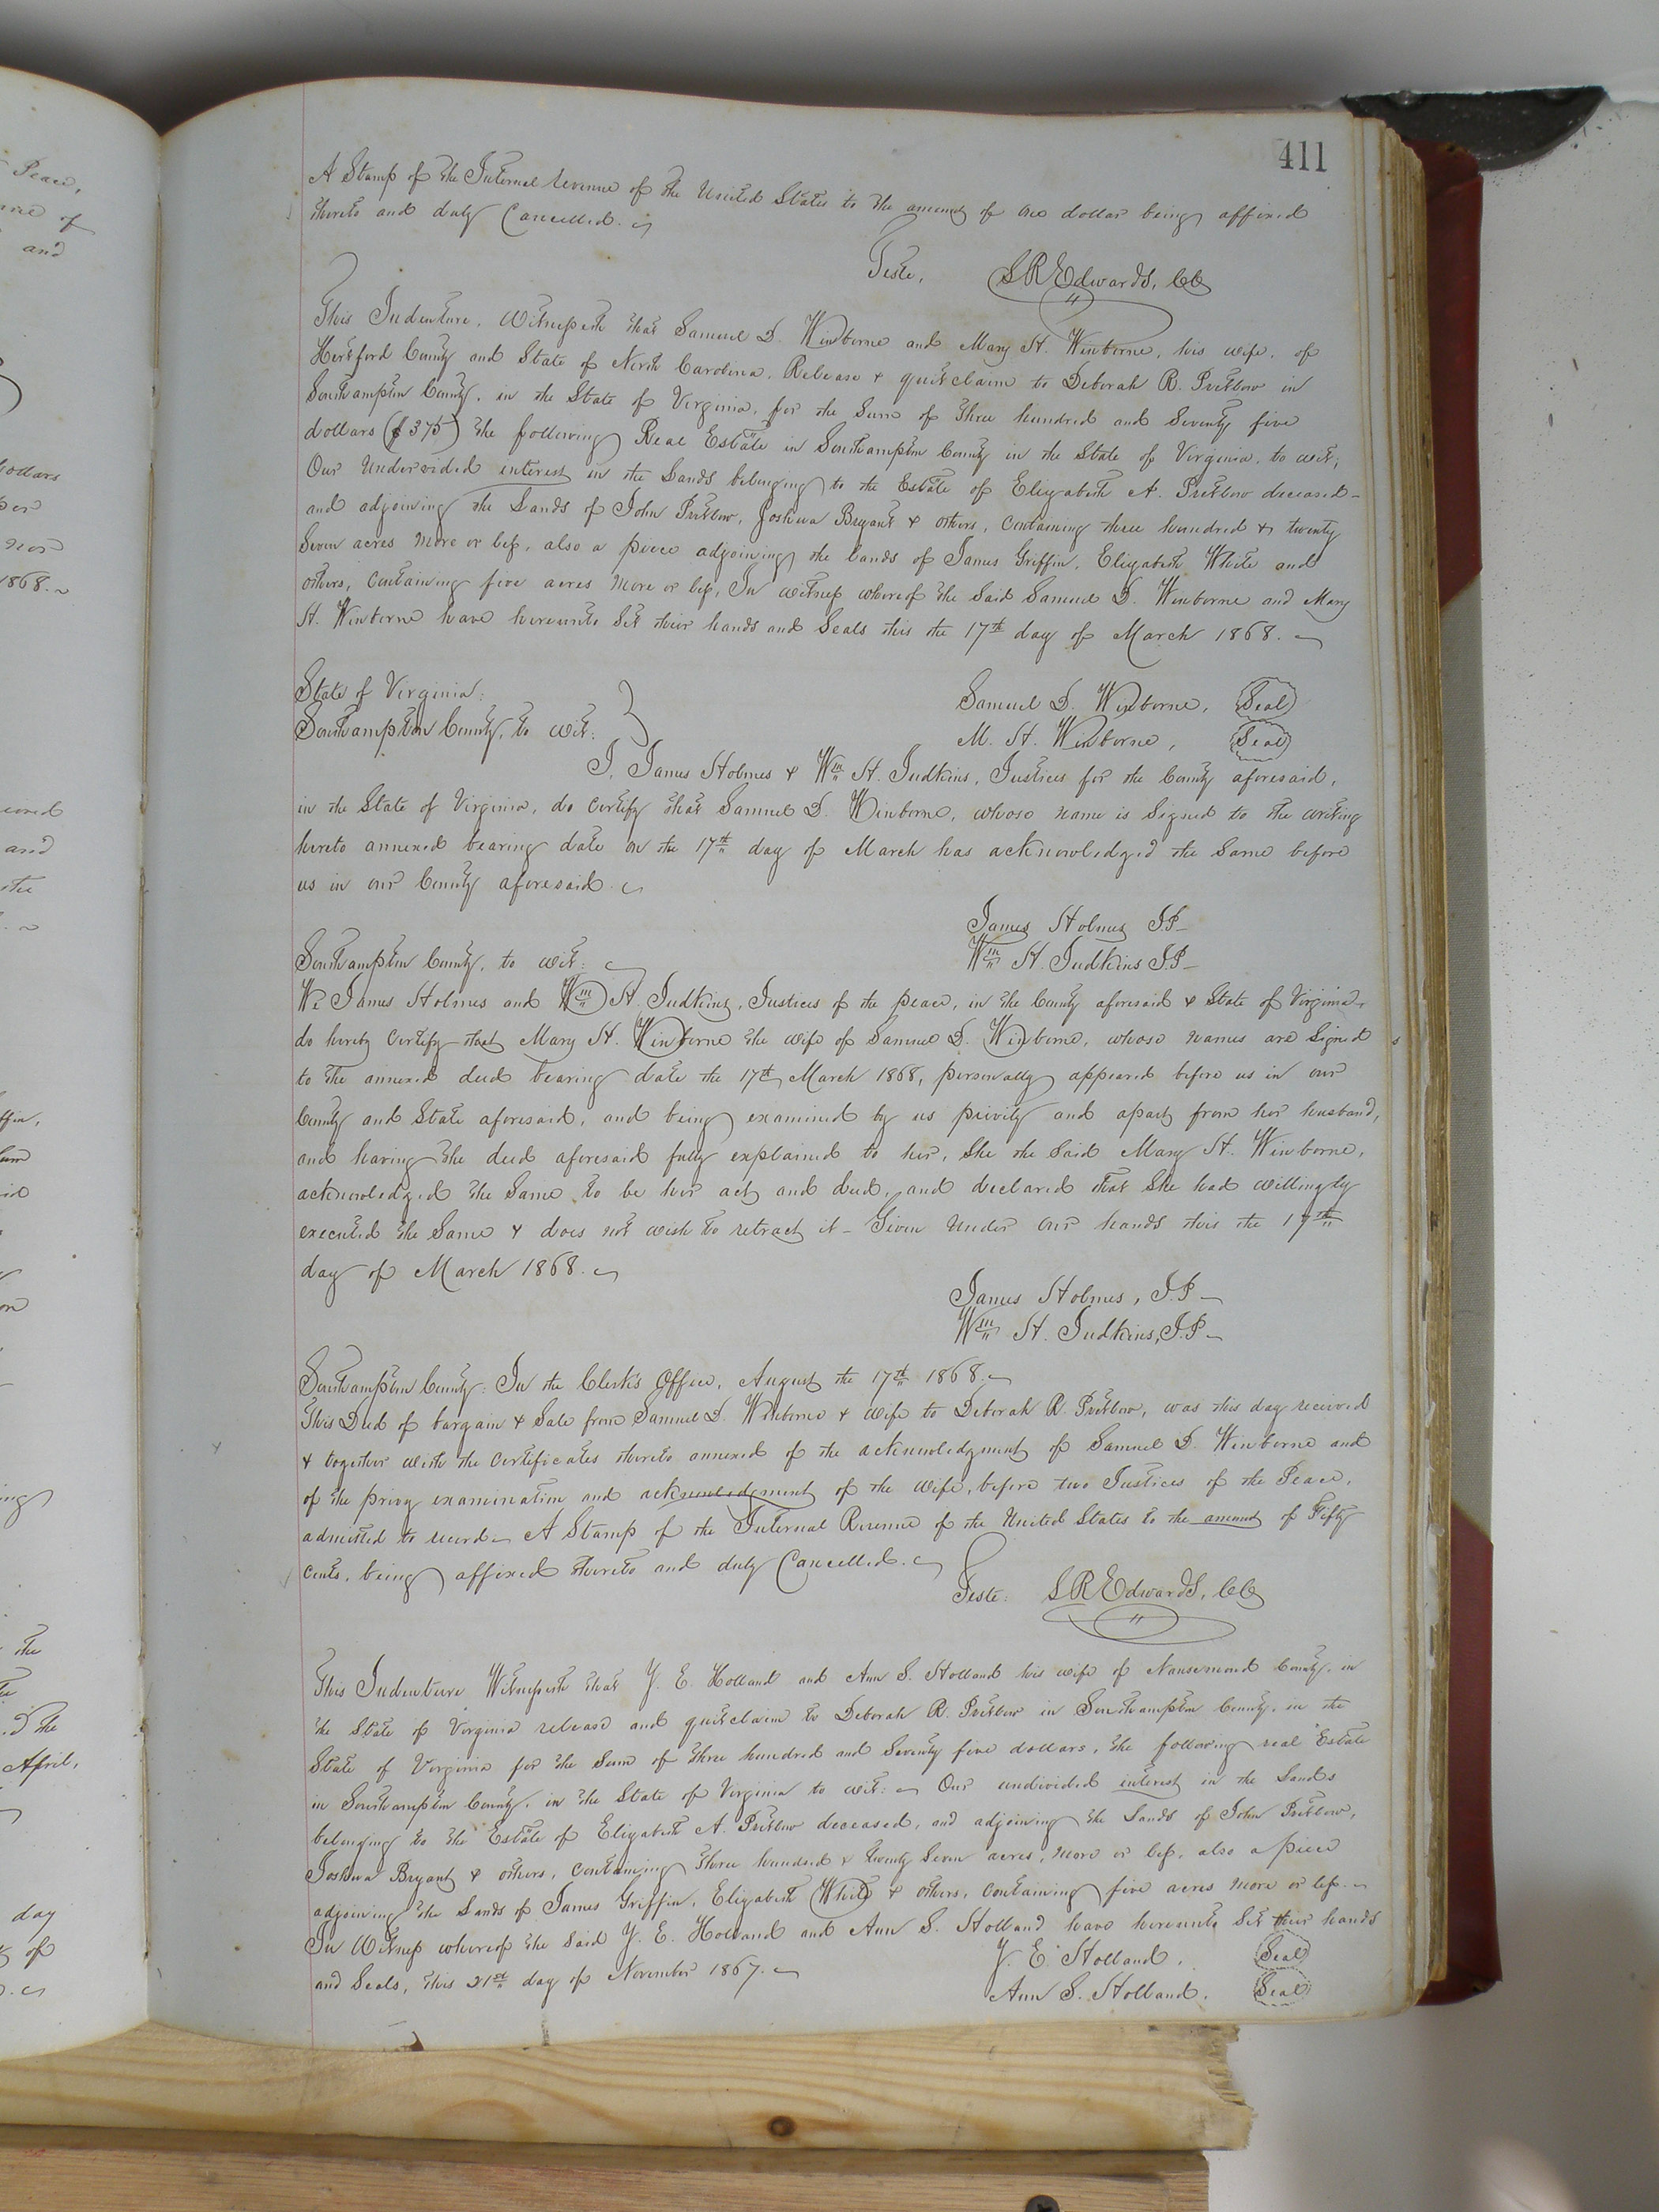 411
A Stamp of the Internal revenue of the United States to the amount of one dollar being affixed
thereto and duly Cancelled.
Teste, L R Edwards, CC
This Indenture, Witnesseth that Samuel D. Winborne and Mary H. Winborne, his wife, of
Hertford County and State of North Carolina, Release & quitclaim to Deborah R. Pretlow in
Southampton County, in the State of Virginia, for the Sum of Three hundred and Seventy five
dollars ($375) the following Real Estate in Southampton County in the State of Virginia, to wit;
Our Undivided interest in the Lands belonging to the Estate of Elizabeth A. Pretlow deceased-
and adjoining the Lands of John Pretlow, Joshua Bryant & others, Containing three hundred & twenty
Seven acres More or less, also a piece adjoining the lands of James Griffin, Elizabeth White and
others, Containing five acres More or less, In witness whereof the Said Samuel D. Winborne and Mary
H. Winborne have hereunto Set their hands and Seals this the 17th day of March 1868.
State of Virginia:
Samuel D. Winborne, Seal
Southampton County, to wit:
M. H. Winborne, Seal
I, James Holmes & Wm H. Judkins, Justices for the County aforesaid,
in the State of Virginia, do Certify that Samuel D. Winborne, whose name is Signed to the writing
hereto annexed bearing date on the 17th day of March has acknowledged the Same before
us in our County aforesaid.
James Holmes J.P-
Southampton County, to wit:
Wm H. Judkins J.P-
We James Holmes and Wm H. Judkins, Justices of the peace, in the County aforesaid & State of Virginia,
do hereby Certify that Mary H. Winborne the wife of Samuel D. Winborne, whose names are Signed
to the annexed deed bearing date the 17th March 1868, personally appeared before us in our
County and State aforesaid, and being examined by us privily and apart from her husband,
and having the deed aforesaid fully explained to her, She the Said Mary H. Winborne,
acknowledged the Same to be her act and deed, and declared that She had willingly
executed the Same & does not wish to retract it - Given Under our hands this the 17th
day of March 1868.
James Holmes, J.P-
Wm H. Judkins, J.P-
Southampton County: In the Clerk's Office, August the 17th 1868.
This Deed of bargain & Sale from Samuel D. Winborne & wife to Deborah R. Pretlow, was this day received
& together with the Certificates thereto annexed of the acknowledgment of Samuel D. Winborne and
of the privy examination and acknowledgment of the wife, before two Justices of the Peace,
admitted to record- A Stamp of the Internal Revenue of the United States to the amount of Fifty
Cents, being affixed thereto and duly Cancelled.
Teste: L R Edwards, CC
This Indenture Witnesseth that Y. E. Holland and Ann S. Holland his wife of Nansemond County, in
the State of Virginia release and quitclaim to Deborah R. Pretlow in Southampton County, in the
State of Virginia for the Sum of three hundred and Seventy five dollars, the following real Estate
in Southampton County, in the State of Virginia to wit: Our undivided interest in the Lands
belonging to the Estate of Elizabeth A. Pretlow deceased, and adjoining the Lands of John Pretlow,
Joshua Bryant & others, Containing three hundred & twenty Seven acres, More or less, also a piece
adjoining the Lands of James Griffin, Elizabeth White & others, Containing five acres More or less.
In Witness whereof the Said Y. E. Holland and Ann S. Holland have hereunto Set their hands
and Seals, this 21st day of November 1867.
Y. E. Holland, Seal
Ann S. Holland. Seal